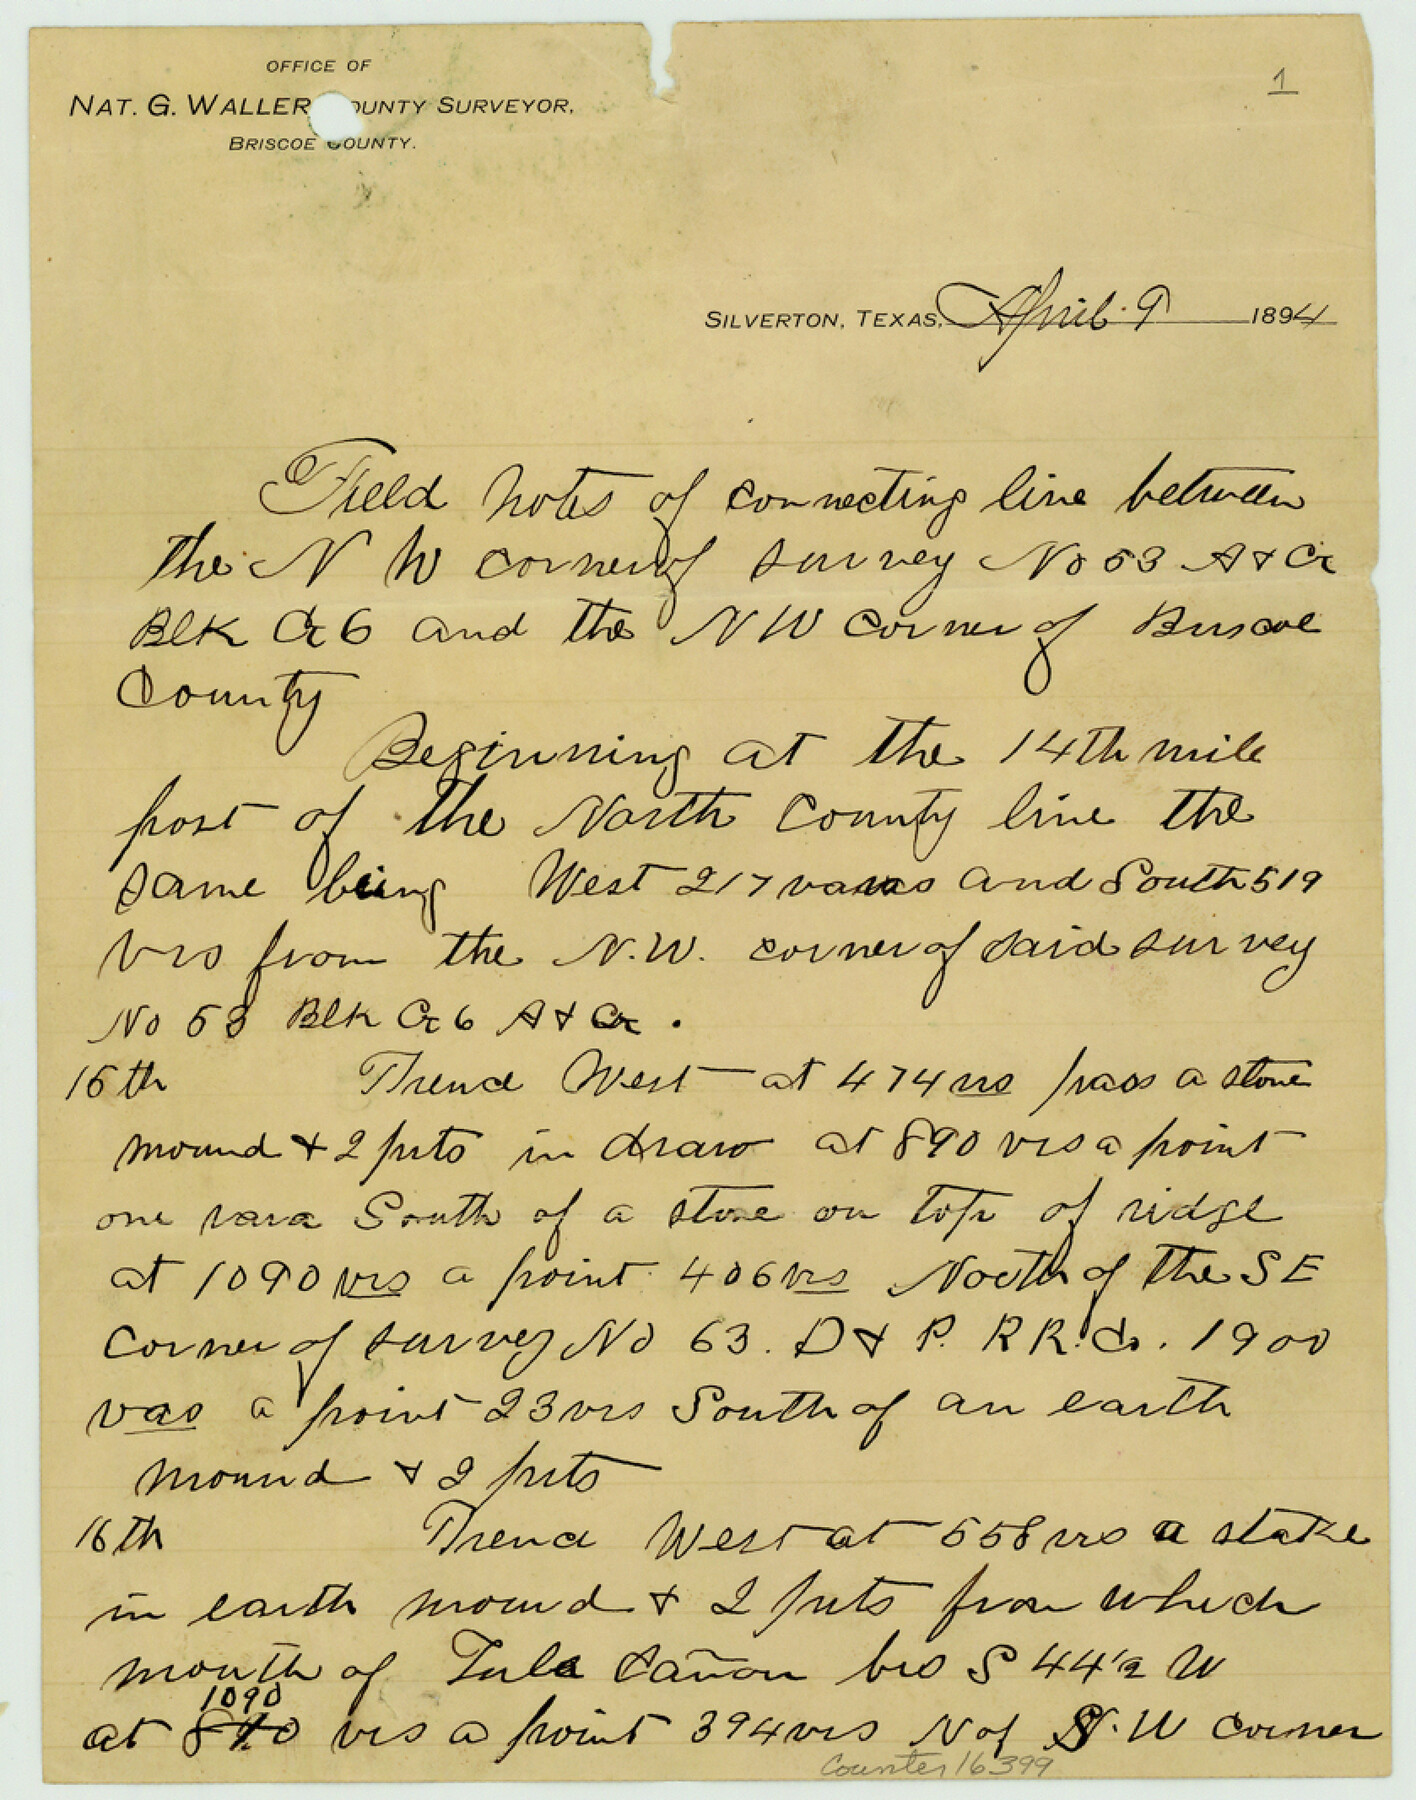 1
OFFICE OF
NAT. G. WALLER OUNTY SURVEYOR,
BRISCOE COUNTY.
SILVERTON, TEXAS, April 9 1894
Field Notes of connecting line between
the N W corner of survey No 53 A & G
Blk G 6 and the N W Corner of Briscoe
County
Beginning at the 14th mile
post of the North County line the
same being West 217 varas and South 519
vrs from the N.W. corner of said survey
No 53 Blk G 6 A & G.
15th Thence West at 474 vrs pass a stone
mound & 2 pits in draw at 890 vrs a point
one vara South of a stone on top of ridge
at 1090 vrs a point 406 vrs North of the S E
Corner of survey No 63. D & P. R R. Co. 1900
vrs a point 23 vrs South of an earth
mound & 2 pits
16th Thence West at 558 vrs a stake
in earth mound & 2 pits from which
mouth of Tule Cañon brs S 44 1/2 W
1090
at 890 vrs a point 394 vrs N of N.W corner
counter 16399